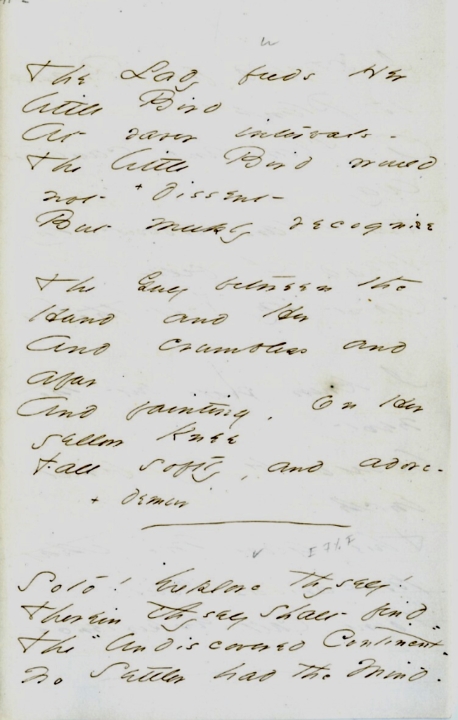 The Lady feeds Her
little Bird
At rarer intervals -
The little Bird would
not + dissent -
But meekly recognize
The Gulf between the
Hand and Her
And crumbless and
afar
And fainting, on Her
yellow Knee
Fall softly, and adore -
+ demur
Soto! Explore thyself!
Therein thyself shalt find
The "Undiscovered Continent" -
No Settler had the Mind.